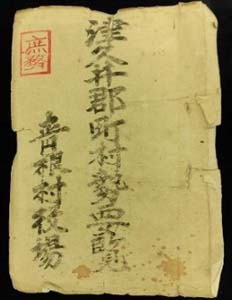 庶務
津久井郡町村勢要覧
青根村役場